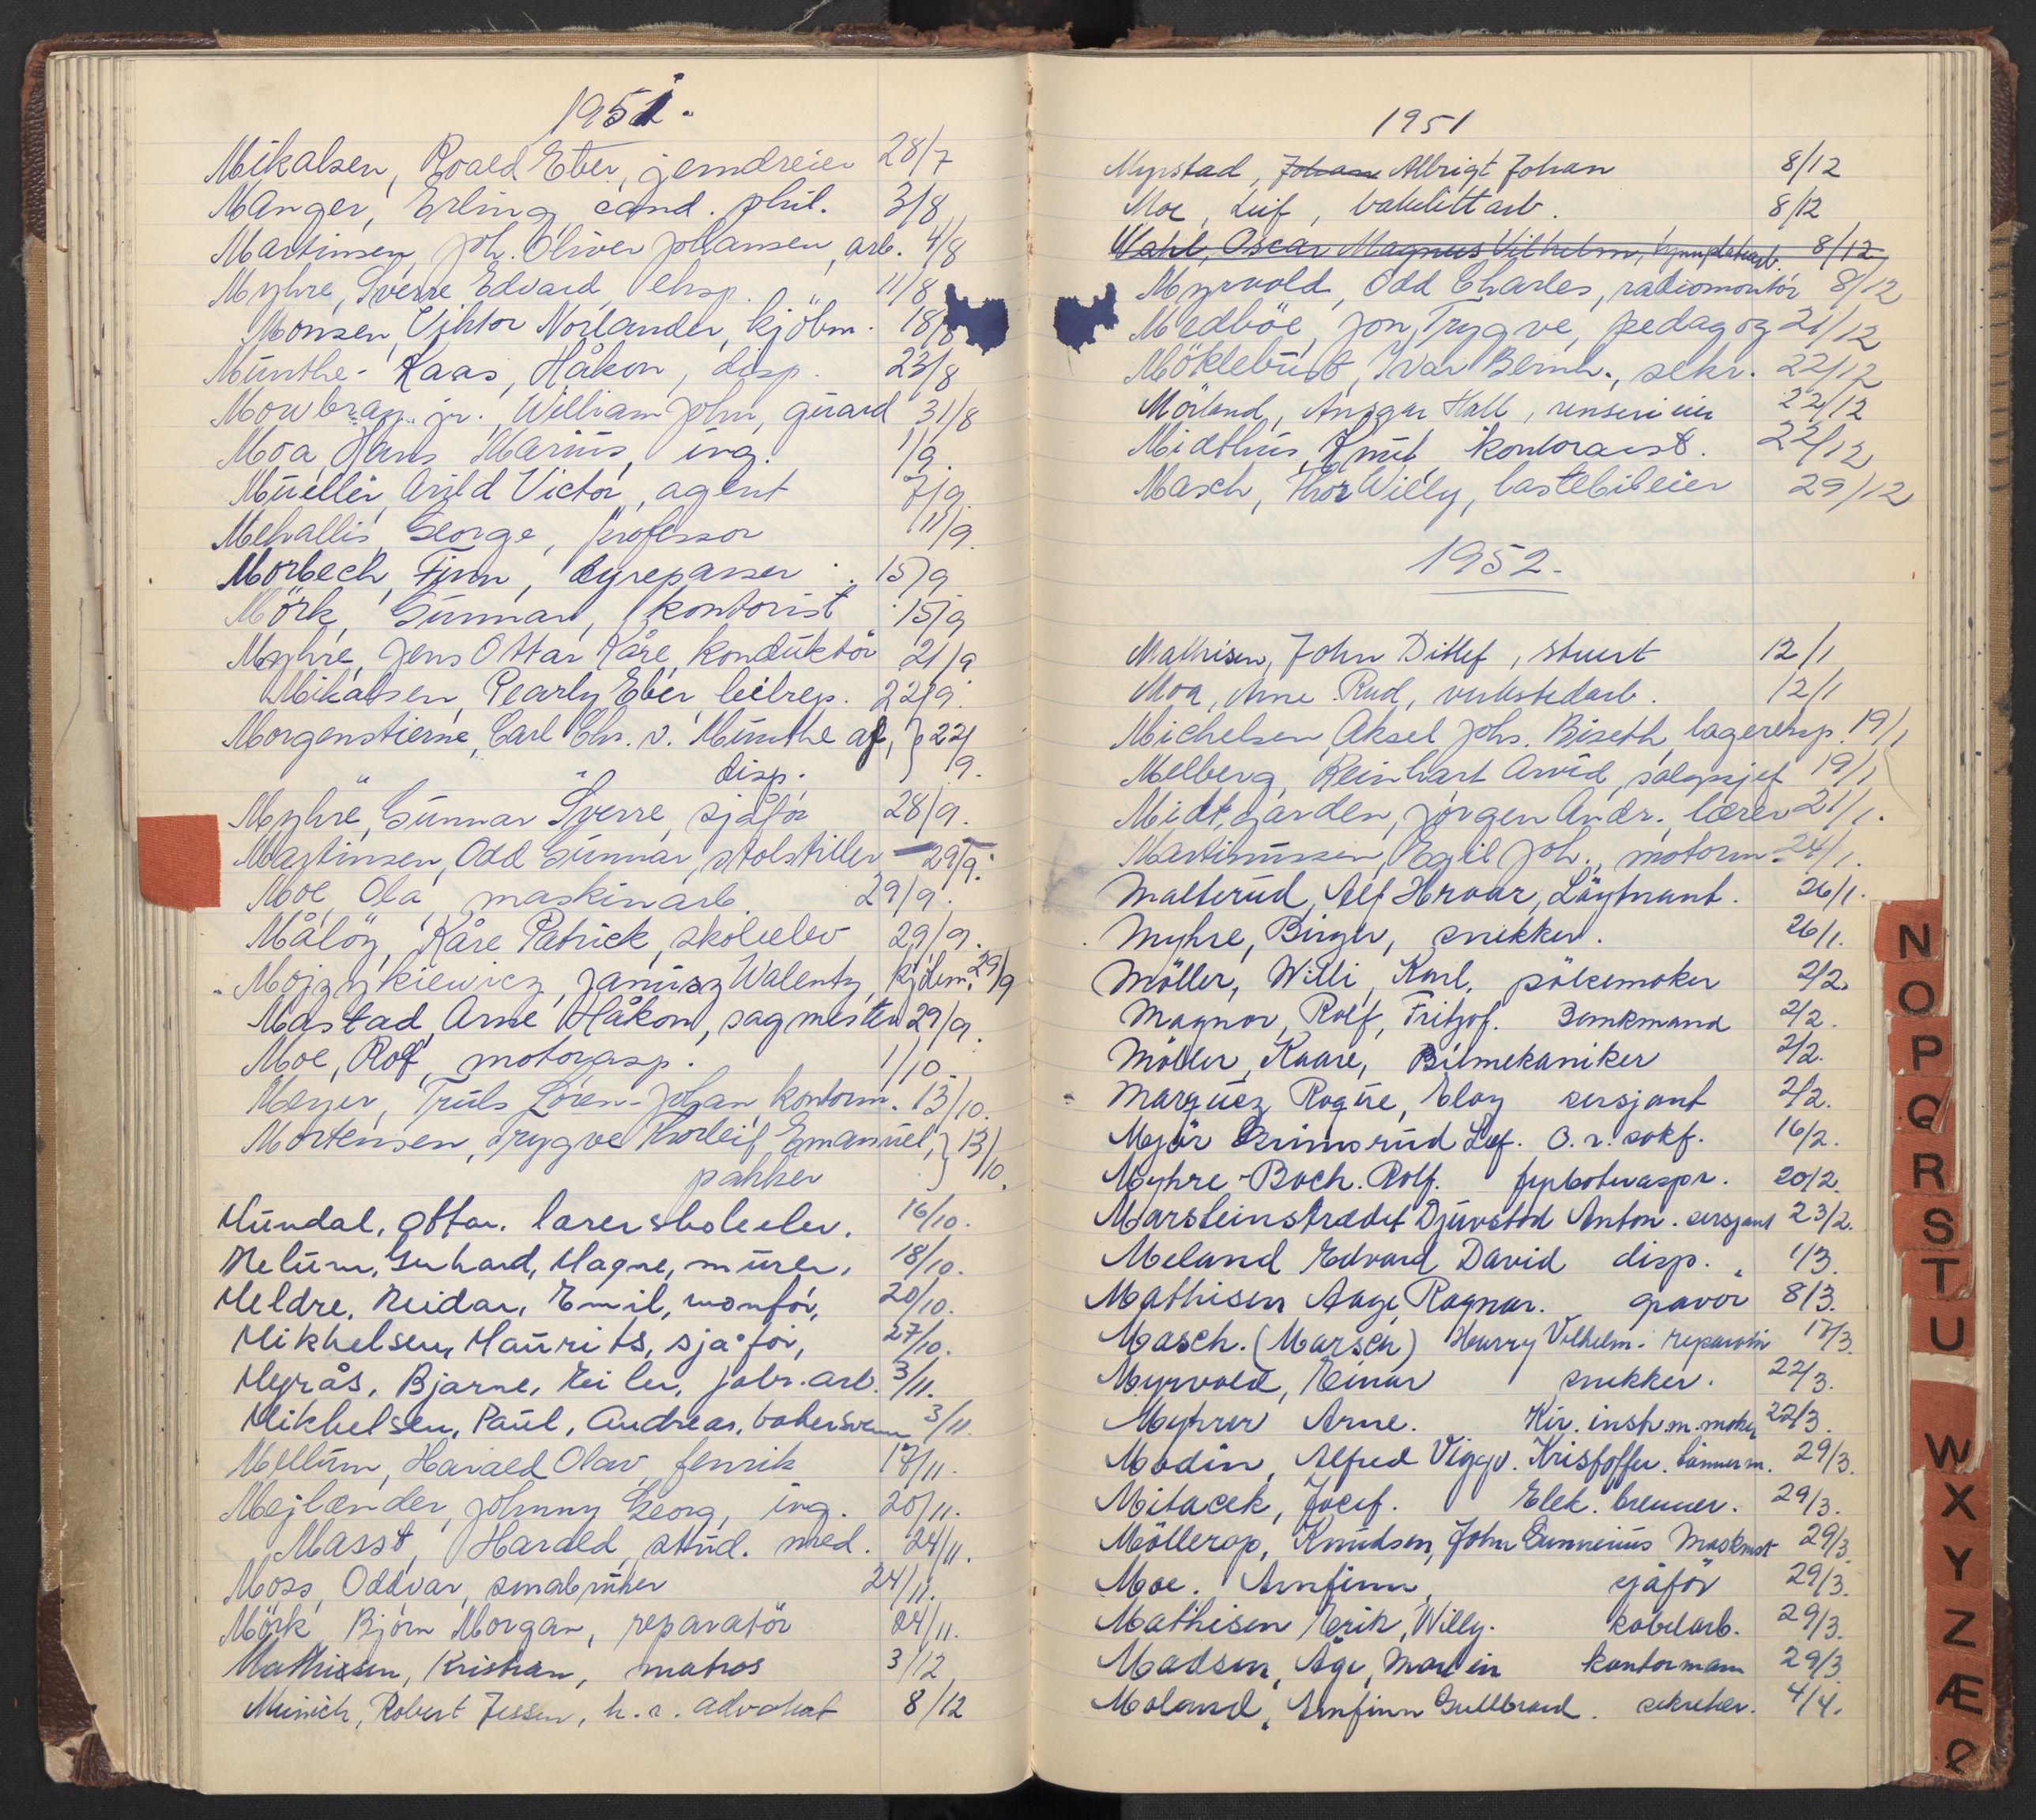 1951.
Mikalsen, Roald Eber, jerndreier 28/7
Manger, Erling cand. phil. 3/8
Martinsen, Joh. Oliver Johansen, arb. 4/8
Myhre, Sverre Edvard, eksp. 11/8
Monsen, Viktor Norlander, kjöbm. 18/8
Munthe-Kaas, Håkon, disp. 23/8
Mowbray jr., William John, guard 31/8
Moa, Hans Marius, ing. 1/9
Mueller, Arild Victor, agent 7/9
Mehallis, George, professor 11/9
Morbech, Finn, dyrepasser 15/9
Mörk, Gunnar, kontorist 15/9
Myhre, Jens Ottar Kåre, konduktör 21/9
Mikalsen, Pearly Eber, beilrep. 22/9
Morgenstierne, Carl Chr. v. Munthe af, } 22/9.
disp.
Myhre, Gunnar Sverre, sjåför 28/9.
Martinsen, Odd Gunnar, stolstiller 29/9.
Moe, Ola, maskinarb. 29/9.
Målöy, Kåre Patrick, skoleelev 29/9.
Mojzykiewicz, Janusz Walenty, kjöbm. 29/9
Mastad, Arne Håkon, sagmester 29/9.
Moe, Rolf, motorasp. 1/10.
Meyer, Truls Loren-Johan, kontorm. 13/10.
Mortensen, Trygve Thorleif Emanuel, } 13/10.
pakker
Mundal, Ottar. lærerskoleelev. 16/10.
Melum, Gerhard, Magne, murer, 18/10.
Meldre, Reidar, Emil, montör, 20/10.
Mikkelsen, Maurits, sjåför, 27/10.
Myrås, Bjarne, Eiler, fabr.arb. 3/11.
Mikkelsen, Paul, Andreas, bakersvenn 3/11.
Mellum, Harald Olav, fenrik 17/11.
Mejlænder, Johnny Georg, ing. 20/11.
Masst, Harald, stud. med. 24/11.
Moss, Oddvar, småbruker 24/11.
Mörk, Björn Morgan, reparatör 24/11.
Mathissen, Kristian, matros 3/12
Munich, Robert Jessen, h.r. advokat 8/12
1951
Myrstad, Johan Albrigt Johan 8/12
Moe, Leif, bakelittarb. 8/12
Wahl, Oscar Magnus Vilhelm, 8/12
Myrvold, Odd Charles, radiomontör 8/12
Medböe, Jon Trygve, pedagog 21/12
Möklebust, Ivar Bernh., sekr. 22/12
Mörland, Ansgar Hall, renserieier 22/12
Midthus, Knut kontorass. 22/12
Masch, Thor Willy, lastebileier 29/12
1952.
Mathisen, John Ditlef, stuert 12/1
Moa, Arne Rud, verkstedarb. 12/1
Michelsen, Aksel Johs. Biseth, lagereksp. 19/1
Melberg, Reinhart Arvid, salgssjef 19/1
Midtgarden, Jörgen Andr., lærer 21/1.
Martinussen, Egil Joh., motorm. 24/1.
Malterud, Alf Hroar, Löytnant. 26/1.
Myhre, Birger, snekker. 26/1.
Möller, Willi, Karl, pölsemaker 2/2.
Magnor, Rolf, Fritjof. Bankmand 2/2.
Möller, Kaare, Bilmekaniker 2/2.
Marquez Roque, Eloy sersjant 2/2.
Mjör Grimsrud Leif. O.r. sakf. 16/2.
Myhre-Boch. Rolf. fyrböteraspr. 20/2.
Marsteinstrædet Djuvstod Anton. sersjant 23/2.
Meland Edvard David disp. 1/3.
Mathisen Aage Ragnar. gravör 8/3.
Masch. (Marsch) Harry Vilhelm. reparatör 17/3.
Myrvold, Einar snekker. 22/3.
Myhrer Arne. Kir. instr.m.maker 22/3.
Modin, Alfred Viggo. Kristoffer. tömmerm. 29/3.
Mitacek, Josef. Elek. brenner. 29/3.
Möllerop, Knudsen, John Gunnerius Maskmst 29/3.
Moe. Arnfinn, sjåför 29/3.
Mathisen Erik, Willy. kabelarb. 29/3.
Madsen, Åge, Martin kontormann 29/3
Moland, Arnfinn Gullbrand. sekretær. 4/4.
N
O
P
Q
R
S
T
U
W
X
Y
Z
Æ